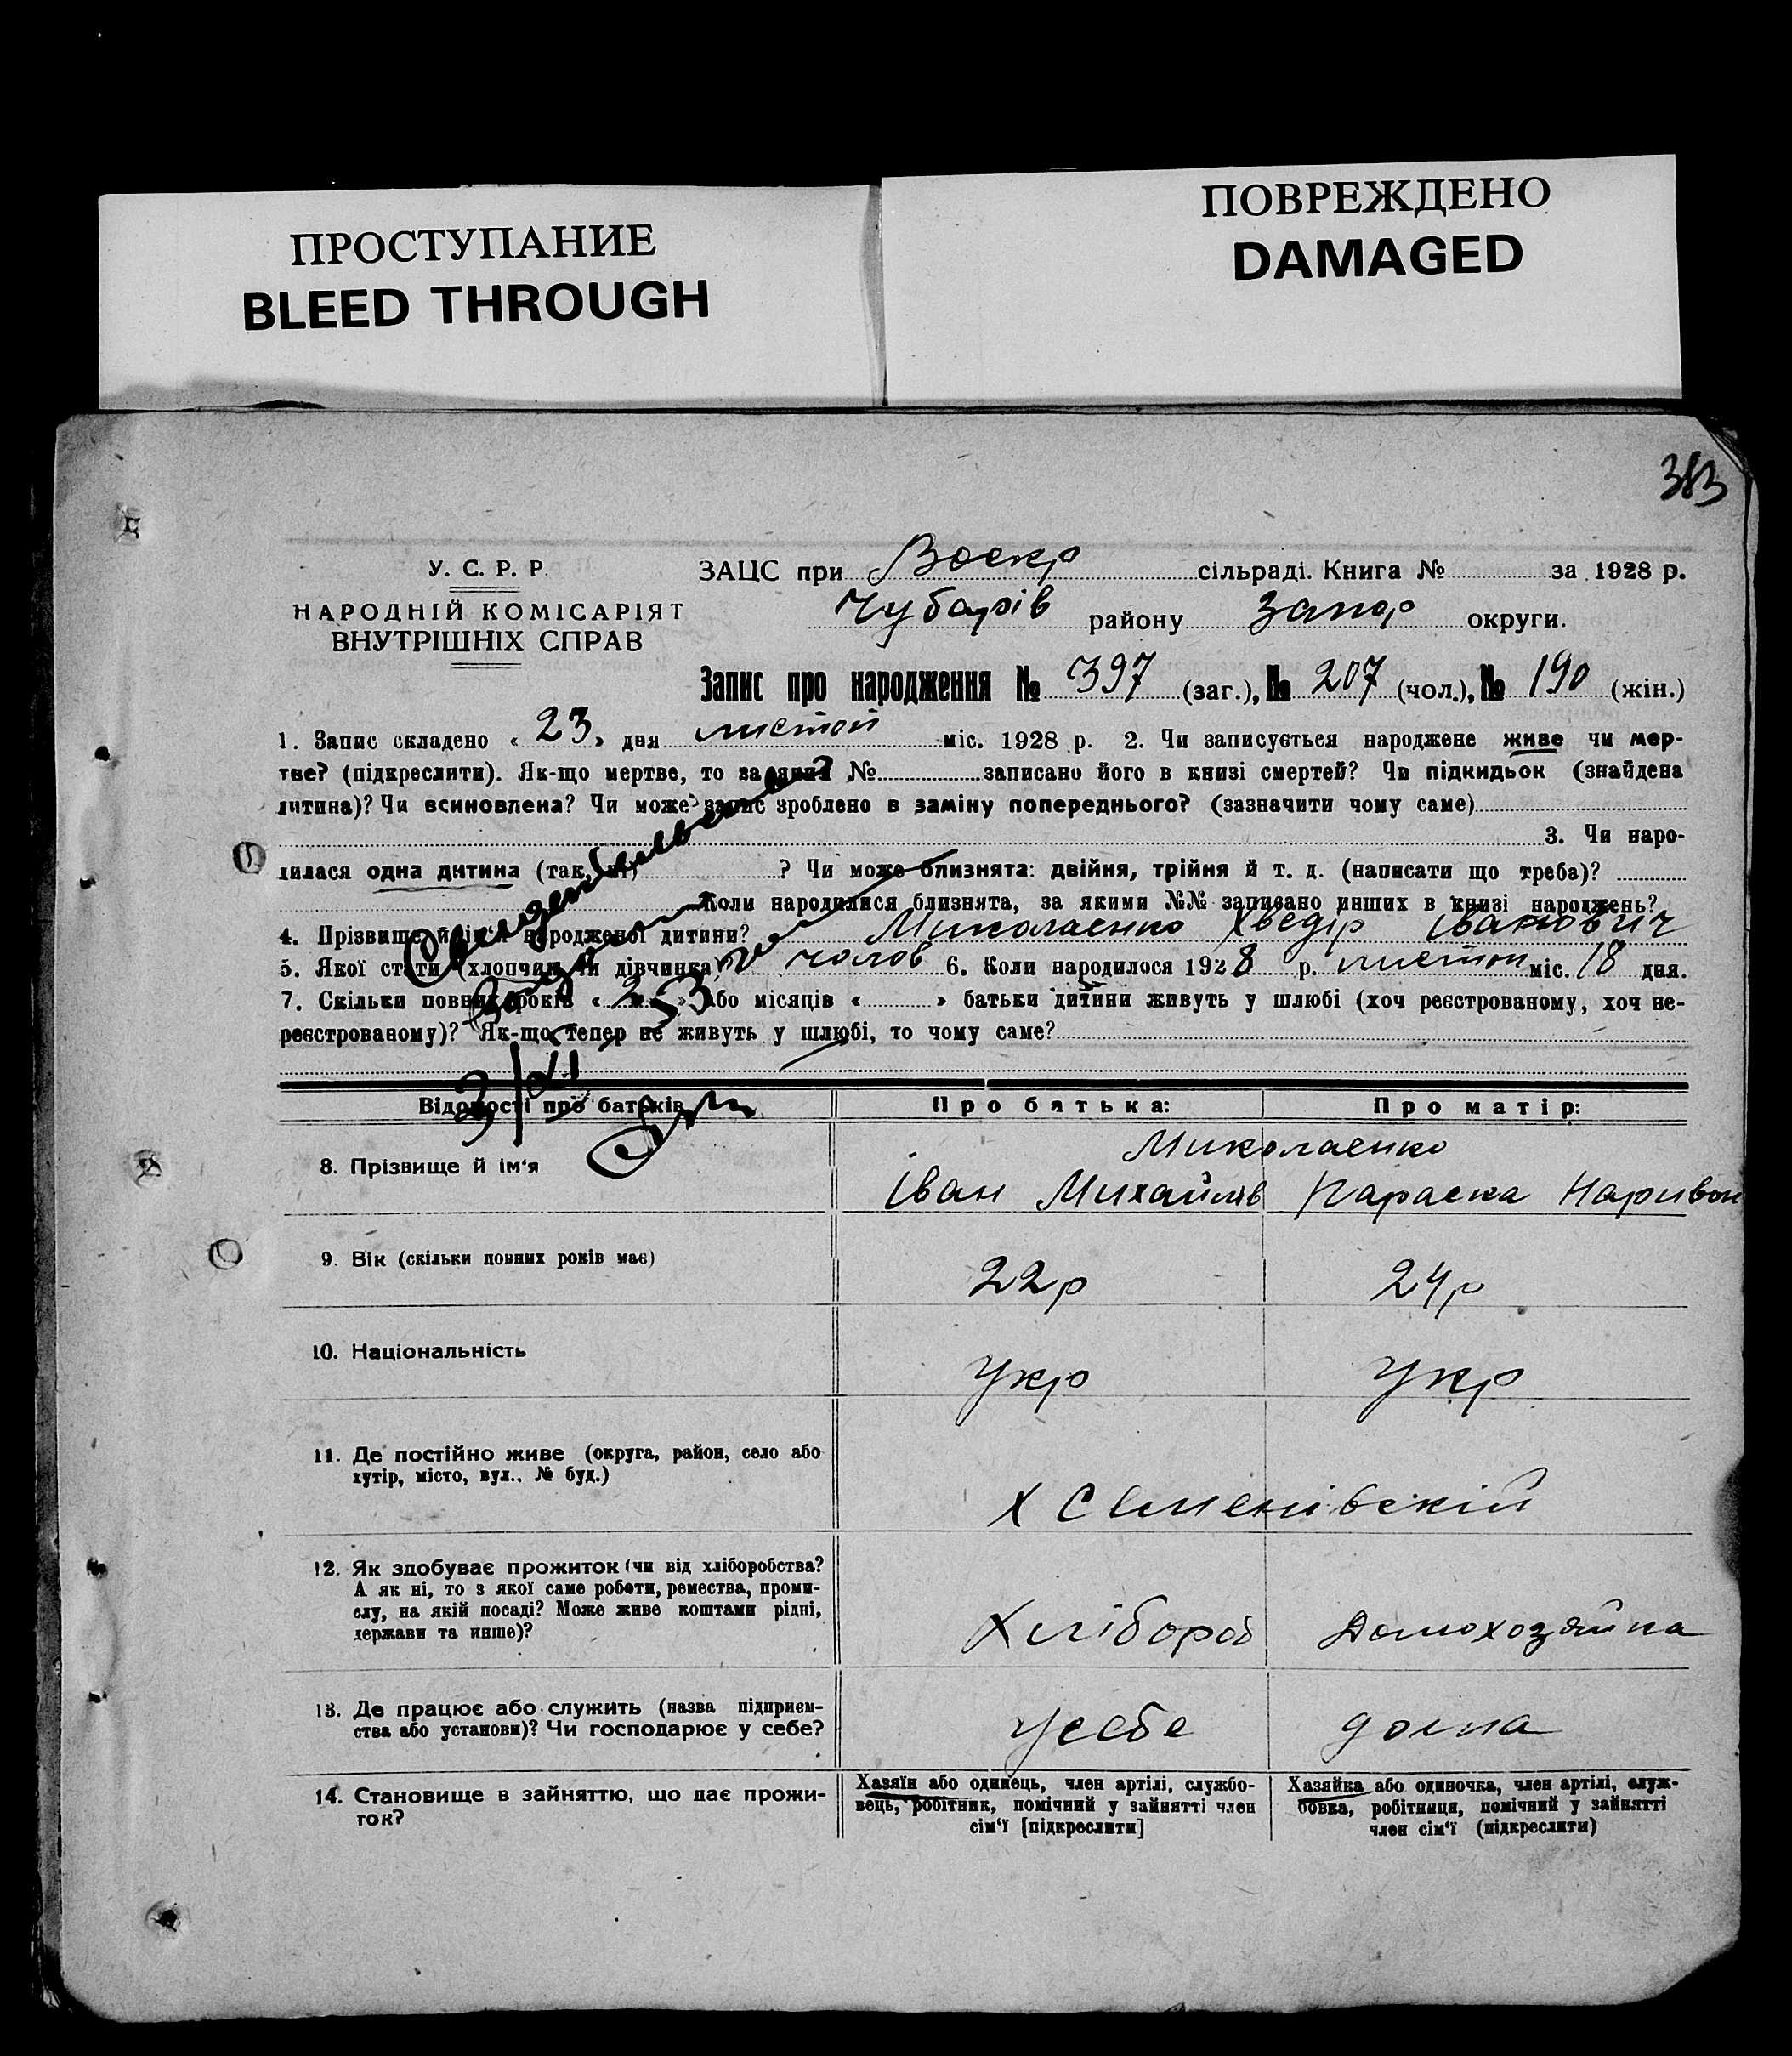 ПРОСТУПАНИЕ
BLEED THROUGH
ПОВРЕЖДЕНО
DAMAGED
383
У. С. Р. Р.
НАРОДНІЙ КОМІСАРІЯТ
ВНУТРІШНІХ СПРАВ
ЗАЦС при Воскр сільраді. Книга № за 1928 р.
Чубарів району Запор округи.
Запис про народження № 397 (заг.), № 207 (чол.), № 190 (жін.)
1. Запис складено « 23 » дня листоп міс. 1928 р. 2. Чи записується народжене живе чи мер-
тве? (підкреслити). Як-що мертве, то за яким № записано його в книзі смертей? Чи підкидьок (знайдена
дитина)? Чи всиновлена? Чи може запис зроблено в заміну попереднього? (зазначити чому саме)
3. Чи наро-
дилася одна дитина (так, ні) ? Чи може близнята: двійня, трійня й т. д. (написати що треба)?
Коли народилися близнята, за якими №№ записано инших в книзі народжень?
4. Прізвище й ім'я народженої дитини? Миколаенко Хведір Іванович
5. Якої стати (хлопчик чи дівчинка) чолов 6. Коли народилося 1928 р. листоп міс. 18 дня.
7. Скільки повних років « 2 » або місяців « » батьки дитини живуть у шлюбі (хоч реєстрованому, хоч не-
реєстрованому)? Як-що тепер не живуть у шлюбі, то чому саме?
3/XI 53
Відомості про батьків Про батька: Про матір:
8. Прізвище й ім'я Миколаенко
Іван Михайлів Параска Наривон
9. Вік (скільки повних років має) 22р 24р
10. Національність Укр Укр
11. Де постійно живе (округа, район, село або
хутір, місто, вул., № буд.)
х Семенівскій
12. Як здобуває прожиток (чи від хліборобства?
А як ні, то з якої саме роботи, ремества, проми-
слу, на якій посаді? Може живе коштами рідні,
держави та инше)?
Хлібороб Домохозяйка
13. Де працює або служить (назва підприєм-
ства або установи)? Чи господарює у себе?
усебе дома
14. Становище в зайняттю, що дає прожи-
ток?
Хазяїн або одинець, член артілі, службо-
вець, робітник, помічний у зайнятті член
сім'ї [підкреслити]
Хазяйка або одиночка, член артілі, служ-
бовка, робітниця, помічний у зайнятті
член сім'ї (підкреслити)